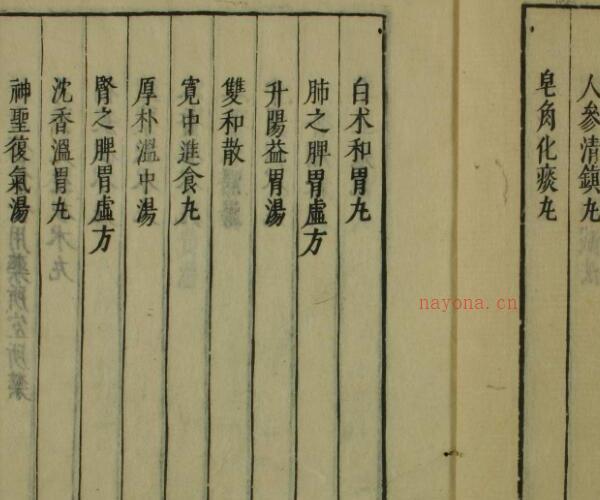 人參清鎮丸
皂角化痰丸
白术和胃丸
肺之脾胃虛方
升陽益胃湯
雙和散
寬中進食丸
厚朴溫中湯
腎之脾胃虛方
沈香溫胃丸
神聖復氣湯
nayona.cn